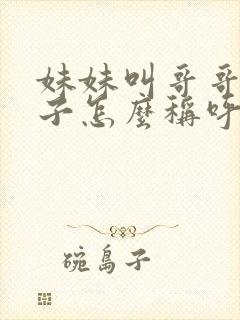 妹妹叫哥哥
子怎麼稱呼
碗島子